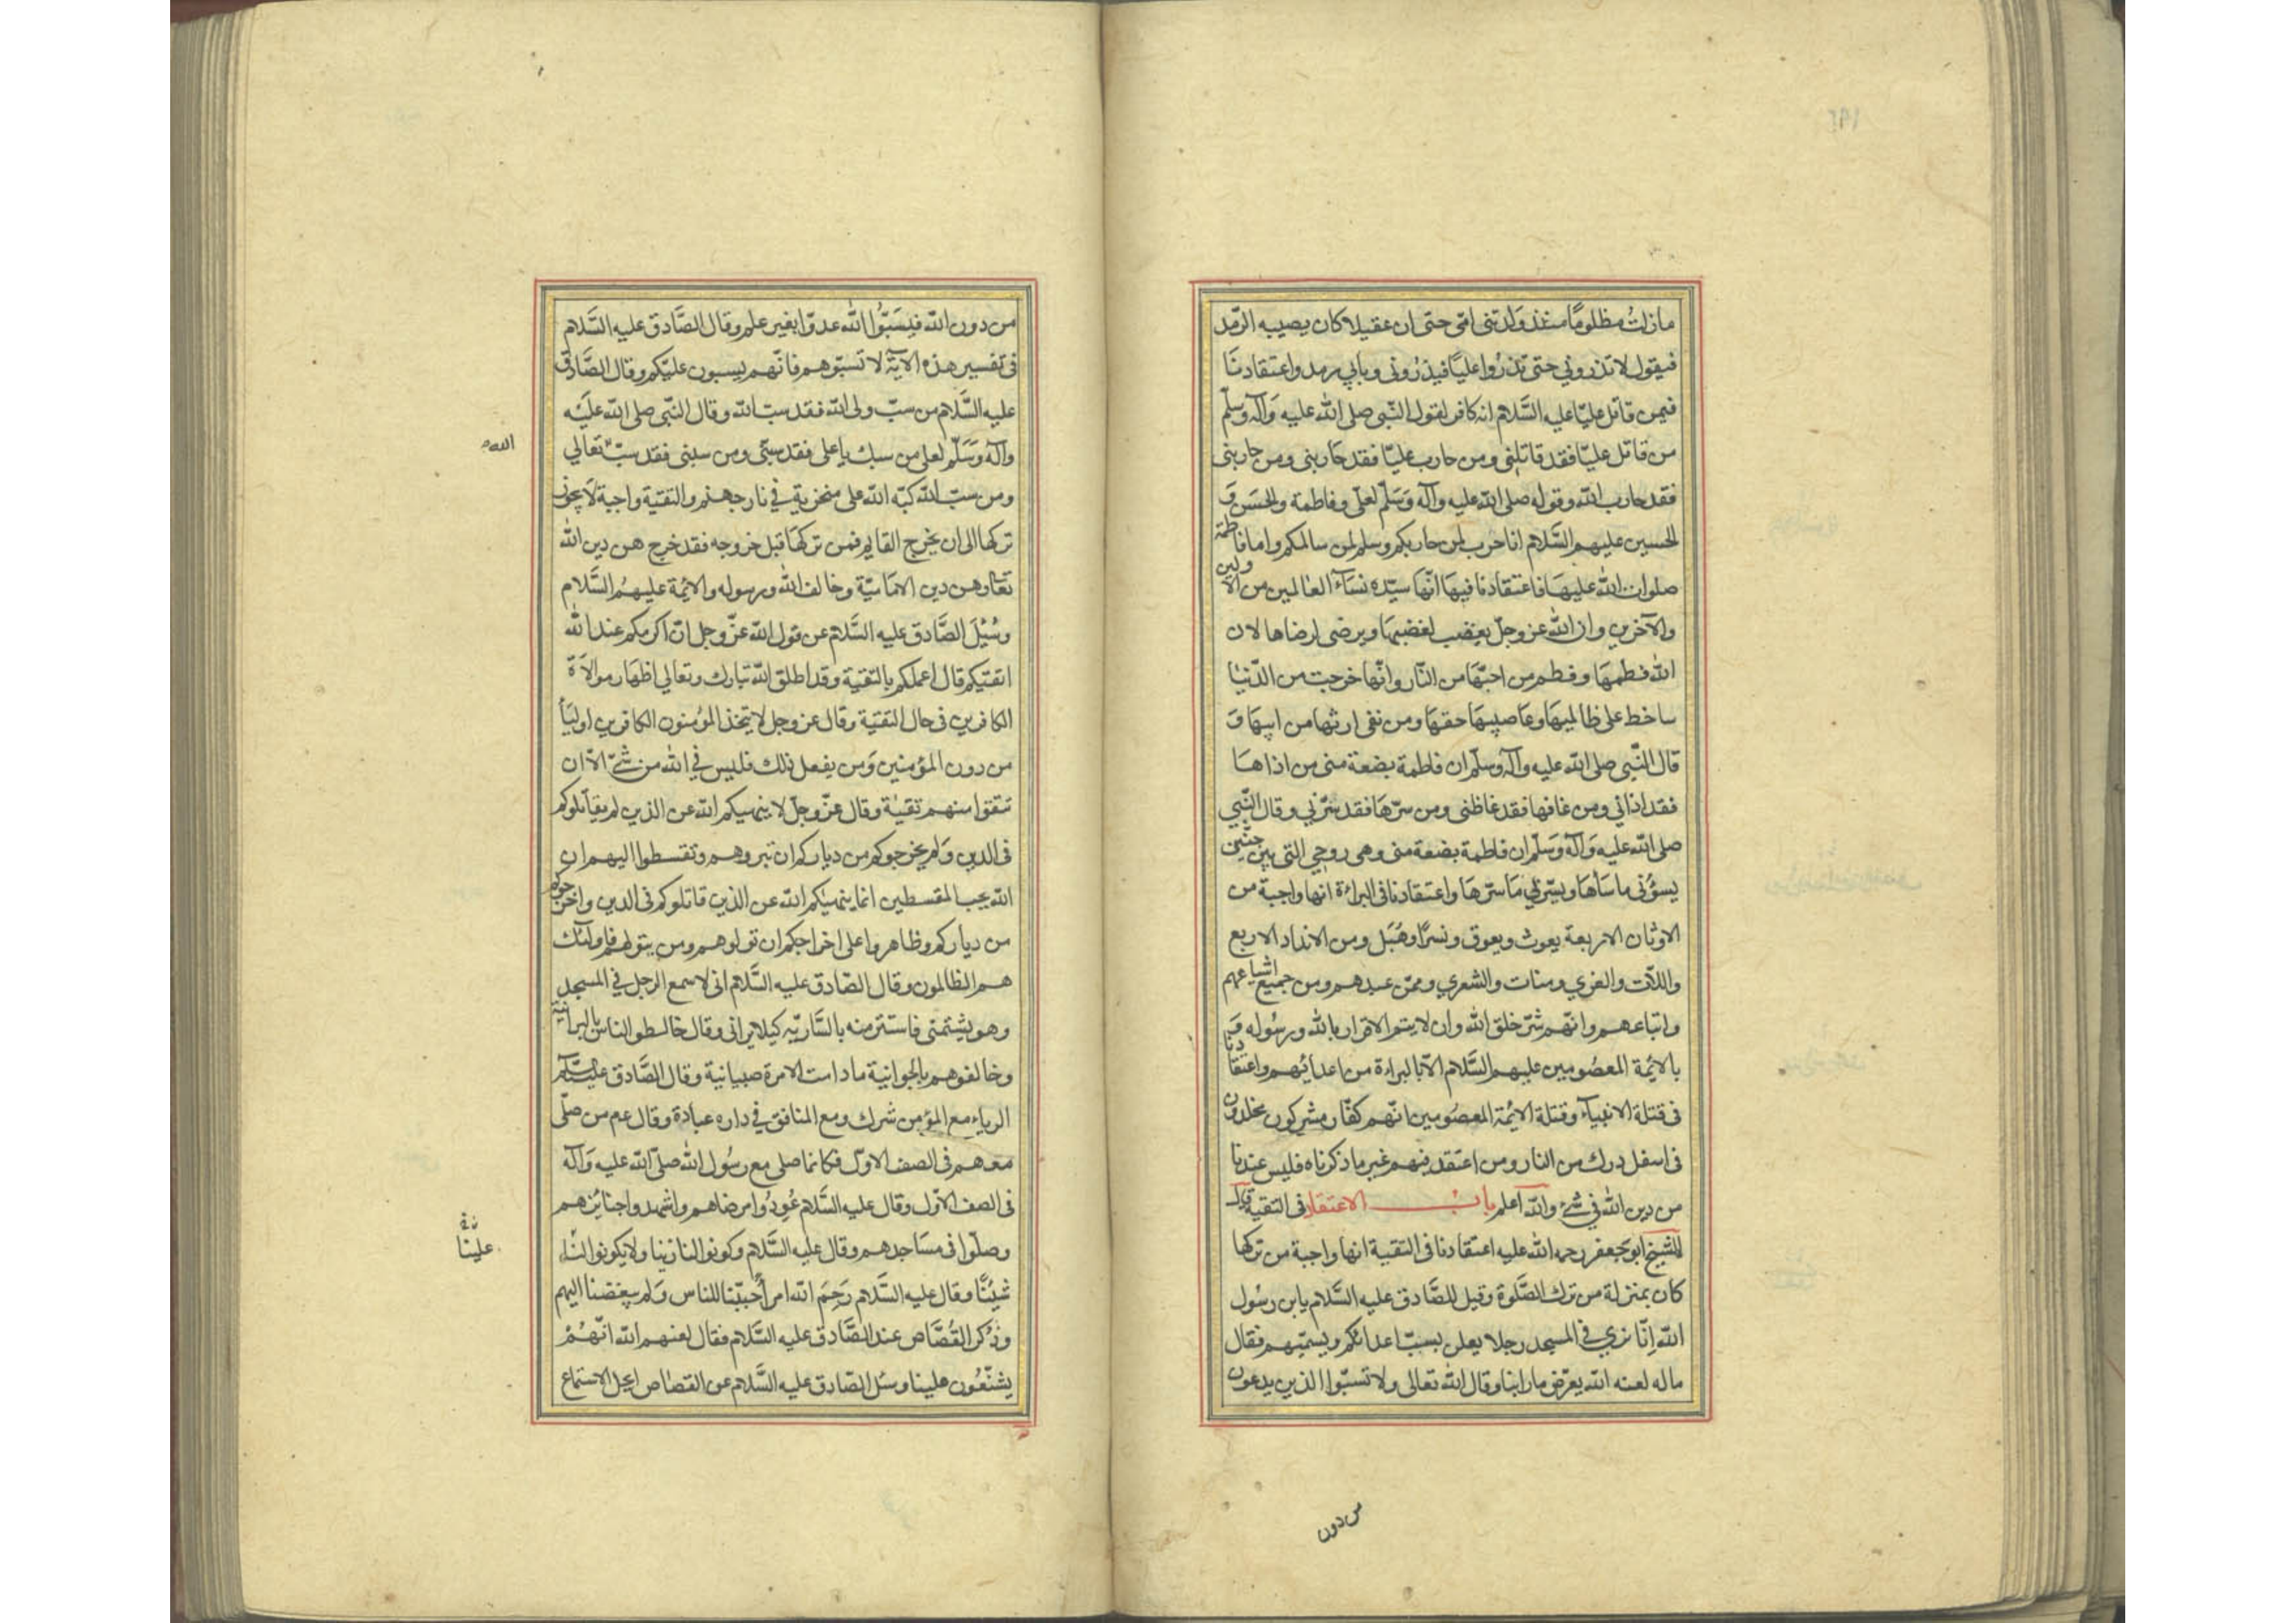 ما زلت مظلومًا منذ ولدتنی امّی حتی ان عقیلا کان یصیبه الرّمد
فیقول لا تذرونی حتی تذرُوا علیًا فیذرُونی وبابی رمد واعتقادنا
فیمن قاتل علیّا علیه السَّلام انه کافر لقول النّبی صلی الله علیه وَآله وسلّم
من قاتل علیّا فقد قاتلنی ومن حارب علیّا فقد حاربنی ومن حاربنی
فقد حارب الله وقوله صلی الله علیه وآله وَسَلّم لعلی وفاطمة والحسَن وَ
الحسین علیهم السَّلام انا حرب لمن حاربکم وسلم لمن سالمکم واما فاطمة
صلوات الله علیهَا فاعتقادنا فیهَا انّهَا سیّدة نسَآء العالمین من الاولین
والآخرین وان الله عز وجلّ یغضب لغضبهَا ویرضی لرضاها لان
الله فطمهَا وفطم من احبّهَا من النّار وانّها خرجت من الدّنیا
ساخط علی ظالمیهَا وغاصبیهَا حقهَا ومن نفی ارثها من ابیهَا وَ
قال النّبی صلی الله علیه وآله وسلّم ان فاطمة بضعة منی من اذاهَا
فقد اذانی ومن غاظها فقد غاظنی ومن سرّهَا فقد سرّنی وقال النّبی
صلی الله علیه وَآله وَسَلّم ان فاطمة بضعة منی وهی روحی التی بین جنبی
یسؤنی ما سَاهَا ویسّرنی مَا سرّهَا واعتقادنا فی البراءة انها واجبة من
الاوثان الاربعة یعوث ویعوق ونسرًا وهُبَل ومن الانداد الاربع
واللّات والعزی ومنات والشعری وممّن عبدهم ومن جمیع اشیاعهم
واتباعهم وانّهم شرّ خلق الله وان لا یتم الاقرار بالله ورسُوله وَ
بالائمة المعصُومین علیهم السَّلام الّا بالبراءة من اعدائهم واعتقادنا
فی قتلة الانبیآء وقتلة الائمة المعصُومین انّهم کفّار مشرکون مخلدون
فی اسفل درك من النار ومن اعتقد فیهم غیر ما ذکرناه فلیس عندنا
من دین الله فی شیء والله اعلم باب الاعتقاد فی التقیة قال
الشیخ ابو جَعفر رحمه الله علیه اعتقادنا فی التقیة انها واجبة من ترکها
کان بمنزلة من ترك الصَّلوة وقیل للصَّادق علیه السَّلام یابن رسُول
الله اِنّا نری فی المسجد رجلا یعلن بسبّ اعدائکم ویسمّیهم فقال
ماله لعنه الله یعرّض بنا وقال الله تعالی ولا تسبّوا الذین یدعون
من دون
من دون الله فیسَبُّوا الله عدوًا بغیر علم وقال الصَّادق علیه السَّلام
فی تفسیر هذه الآیة لا تسبّوهم فانّهم یسبون علیّکم وقال الصَّادق
علیه السَّلام من سبّ ولی الله فقد سبّ الله وقال النّبی صلی الله علیَه
وآله وَسَلّم لعلی من سبك یا علی فقد سبّنی ومن سبنی فقد سبّ تعالی
الله
ومن سبّ الله کبّه الله علی منخریة فی نار جهنم والتقیّة واجبة لَا یجوز
ترکها الی ان یخرج القایم فمن ترکهَا قبل خروجه فقد خرج من دین الله
تعَالی ومن دین الامَامیّة وخالف الله ورسوله والائمة علیهمُ السَّلام
وسُئِلَ الصَّادق علیه السَّلام عن قول الله عزّ وجل انّ اکرمکم عند الله
اتقیکم قال اعملکم بالتقیة وقد اطلق الله تبارك وتعالی اظهَار موالَاة
الکافرین فی حال التقیّة وقال عز وجل لا یتخذ المؤمنون الکافرین اولیَآ
من دون المؤمنین وَمن یفعل ذلك فلیس فی الله من شیء الّا ان
تتقوا منهم تقیٰة وقال عزّ وجلّ لا ینهیکم الله عن الذین لم یقاتلوکم
فی الدین وَلم یخرجوکم من دیارکم ان تبروهم وتقسطوا الیهم ان
الله یحب المقسطین انما ینهیٰکم الله عن الذین قاتلوکم فی الدین واخرجوکم
من دیارکم وظاهروا علی اخراجکم ان تولوهم ومن یتولهم فاولئك
هم الظالمون وقال الصّادق علیه السَّلام انی لاسمع الرجل فی المسجد
وهو یشتمنی فاستتر منه بالسَّاریة کیلا یرانی وقال خالطو الناس بالبرانیة
وخالفوهم بالجوانیة مادامت الامرة صبیانیة وقال الصَّادق علیه السّلم
الریاء مع المؤمن شرك ومع المنافق فی داره عبادة وقال عم من صلّی
معهم فی الصف الاوّل فکانما صلی مع رسُول الله صلّی الله علیه وَآله
فی الصف الاوّل وقال علیه السَّلام عُودُوا مرضاهم واشهدوا جنائزهم
وصلّوا فی مسَاجدهم وقال علیه السَّلام وکونوا لنا زینا ولا یکونوا لنا
علینا
شیْنًا وقال علیه السَّلام رَحِمَ الله امرأ حَبّبنا للناس وَلم یبغضنا الیهم
وذُکر القُصَّاص عند الصَّادق علیه السَّلام فقال لعنهم الله انّهُمْ
یشنّعُون علینا وسئل الصّادق علیه السَّلام عن القصَاص ایحل الاستماع